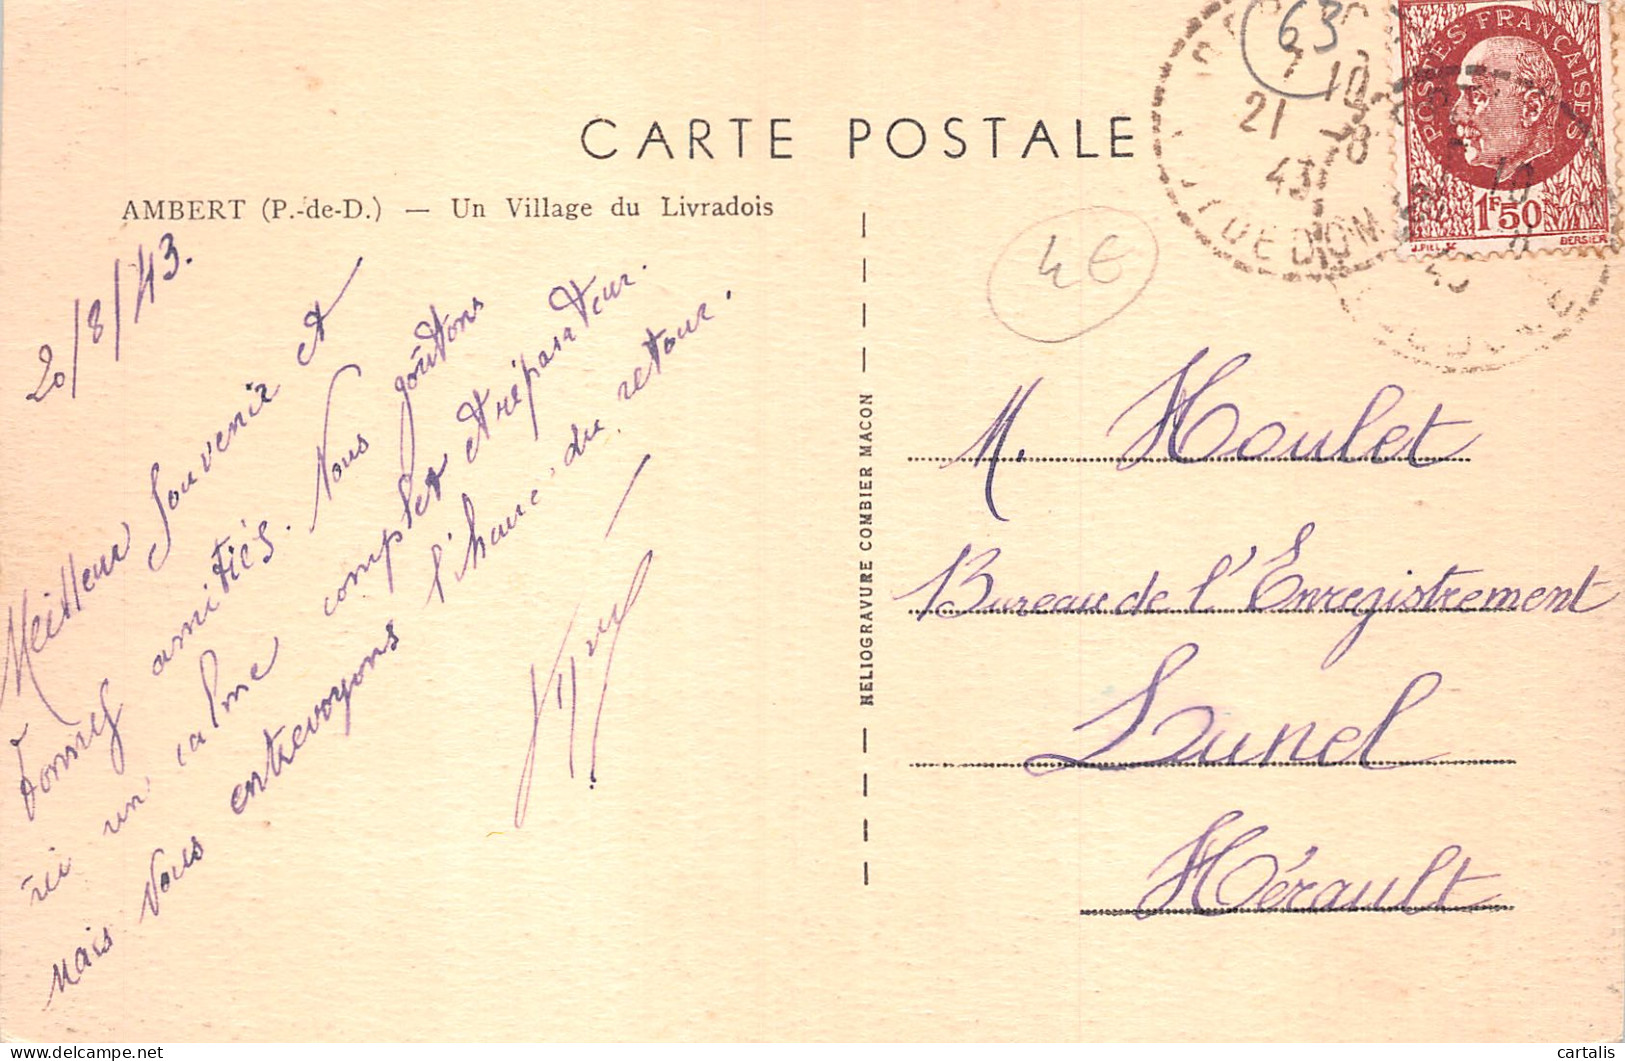 CARTE POSTALE
AMBERT (P.-de-D.) — Un Village du Livradois
20/8/43.
Meilleur souvenir et
bonnes amitiés. Nous goûtons
ici un calme complet et réparateur.
mais nous entrevoyons l'heure du retour.
HELIOGRAVURE COMBIER MACON
63
7 10
21 - 8
43
POSTES FRANÇAISES
1F50
J.PIEL SC
BERSIER
4 €
M. Houlet
Bureau de l'Enregistrement
Lunel
Hérault
cartalis